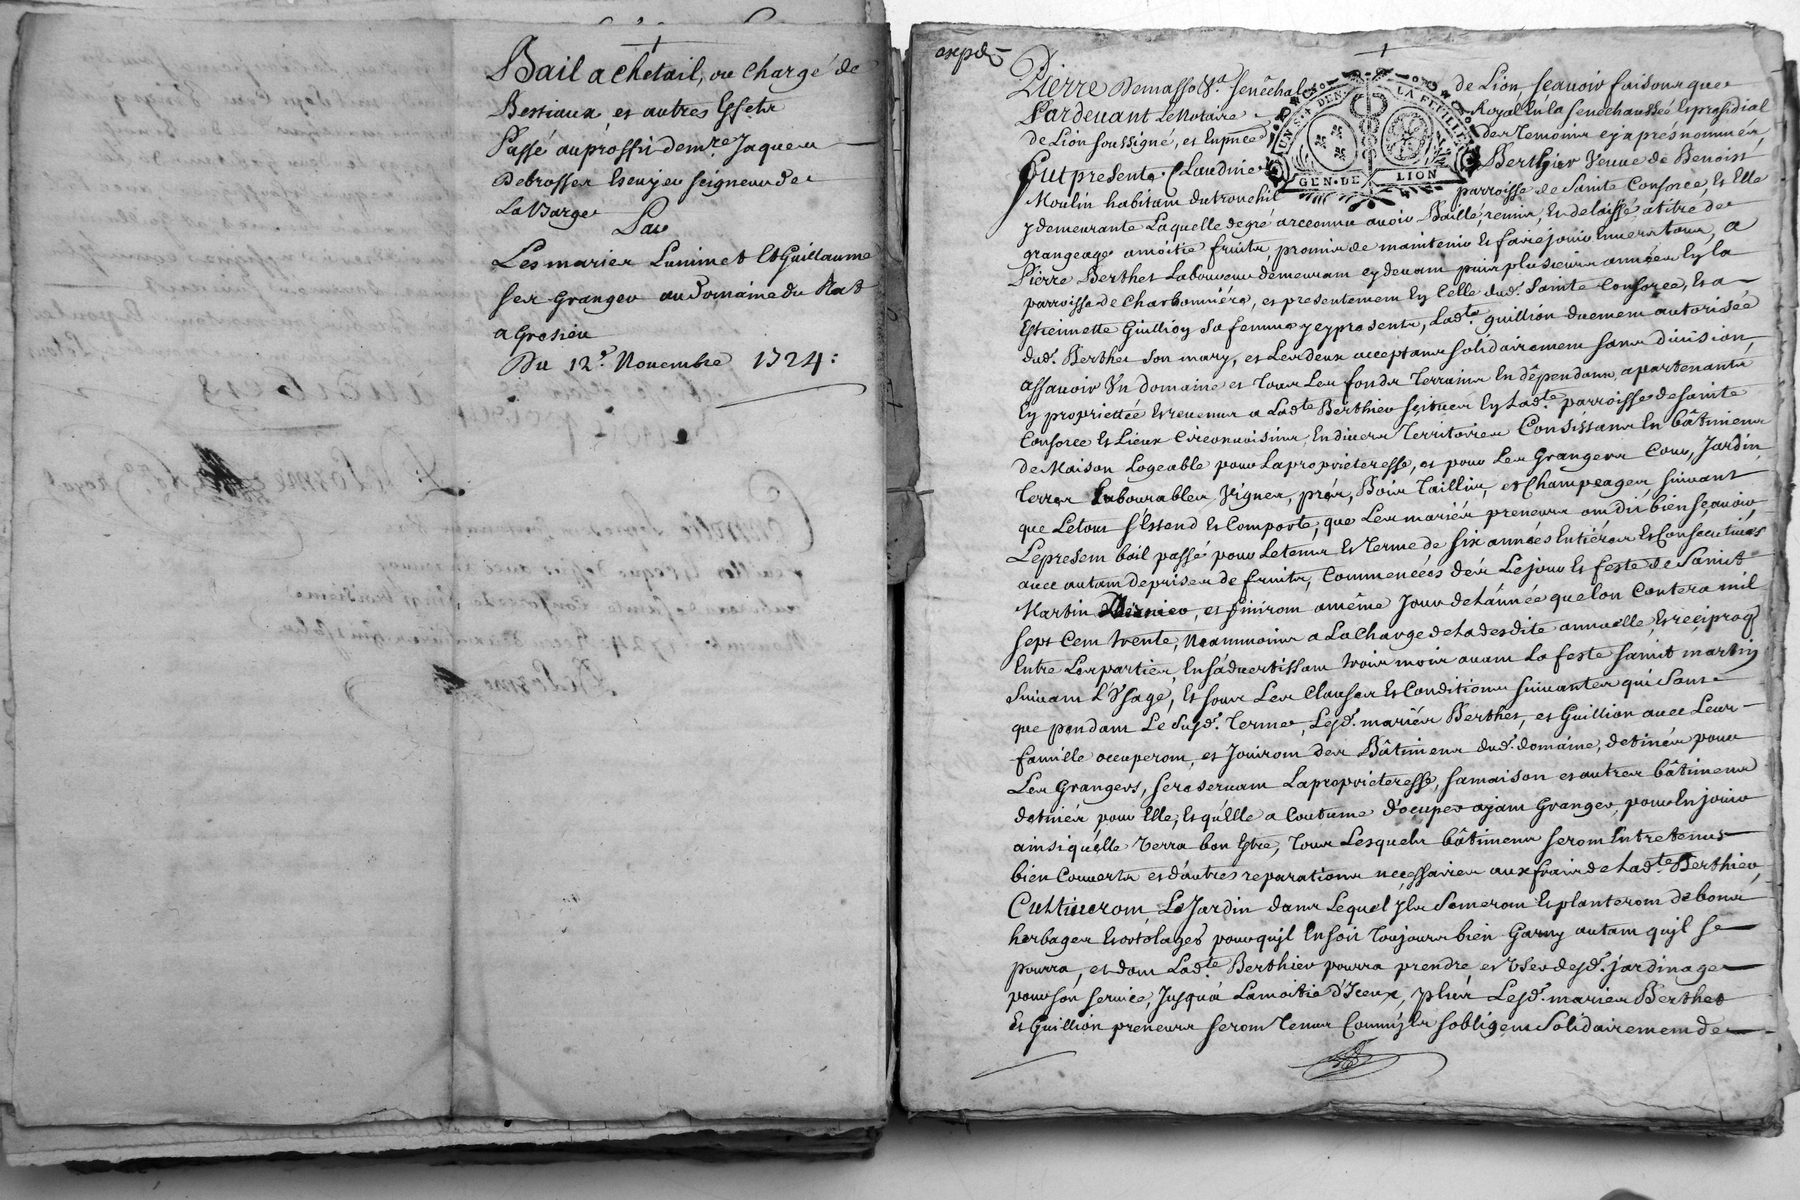 Bail a chetail, ou chargé de
Bestiaux, et autres Effets
Passé au proffit de mre Jaques
Debrosses Escuyer seigneur de
La Barge
Par
Les mariez Luminet Et Guillaume
ses Granger au Domaine du Nat
a Grezieu
Du 12e. Novembre 1724:
expde
Pierre Demasso &a. Senéchal de Lion, sçauoir faisons que
Pardeuant Le Notaire Royal En la senéchaussée Et presidial
de Lion soussigné, et En pnce des Temoins cy aprés nommés,
Fut presente Claudine Berthier Veuve de Benoist
Moulin habitant du trouchil parroisse de Sainte Consorce, Et Elle
y demeurante Laquelle de gré a reconnu auoir Baillé, remis, Et delaissé, a titre de
grangeage a moitié fruits, promis de maintenir Et faire jouir enuers tous, a
Pierre Berthet Laboureur demeurant cy deuant puis plusieurs années En la
parroisse de Charbonniére, et presentement En Celle dud. Sainte Consorce, Et a
Estiennette Guillion sa femme y cy presente, Ladte. guillion duement autorisée
dud. Berthet son mary, et Les deux acceptans solidairement sans diuision,
assauoir Un domaine et Tous Les fonds Terrains En dépendans apartenants
En proprieté Et reuenus a Ladte Berthier scitués En Ladte. parroisse de sainte
Consorce Et Lieux Circonuoisins, En diuers Territoires Consistans En bâtimens
de Maison Logeable pour La proprieteresse, et pour Les Grangers Cour, Jardin
Terres Labourables Vignes, prés, Bois Taillis, et Champeages suiuant
que Le tout s'Estend Et Comporte, que Les mariés preneurs ont dit bien sçauoir,
Le present bail passé pour Le tems Et Terme de six années Entiéres Et Consecutiues
auec autant de prises de fruits, Commencées dés Le jour Et feste de Saint
Martin Dernier, et finiront a même Jour de L'année que l'on Contera mil
sept Cent trente, Neammoins a La Charge de La desdite annuelle, Et reciproq
Entre Les parties, En s'aduertissant trois mois auant La feste saint martin
Suiuant L'Usage, Et sous Les Clauses Et Conditions suiuantes qui Sont
que pendant Le susd. Terme, Lesd. mariés Berthet, et Guillion auec Leur
famille occuperont, et Jouiront des Bâtimens dud. domaine, detinés pour
Les Grangers, se reseruant La proprieteresse, sa maison et autres bâtimens
detinés pour Elle, Et qu'Elle a Coutume d'ocuper ajant Granger, pour En jouir
ainsi qu'elle Verra bon Estre, Tous Lesquels bâtimens seront Entretenus
bien Couverts et d'autres reparations necessaires aux frais de Ladte. Berthier,
Cultiueront Le Jardin dans Lequel Ils Semeront Et planteront de bons
herbages Et ortolages pour qu'jl En soit Toujours bien Garny autant qu'jl se
pourra, et dont Ladte Berthier pourra prendre, et User desd. jardinages
pour son service, Jusqu'a La moitié d'Jceux, plus Lesd. mariés Berthet
Et Guillion preneurs seront Tenus Comm'jls s'obligent Solidairement de